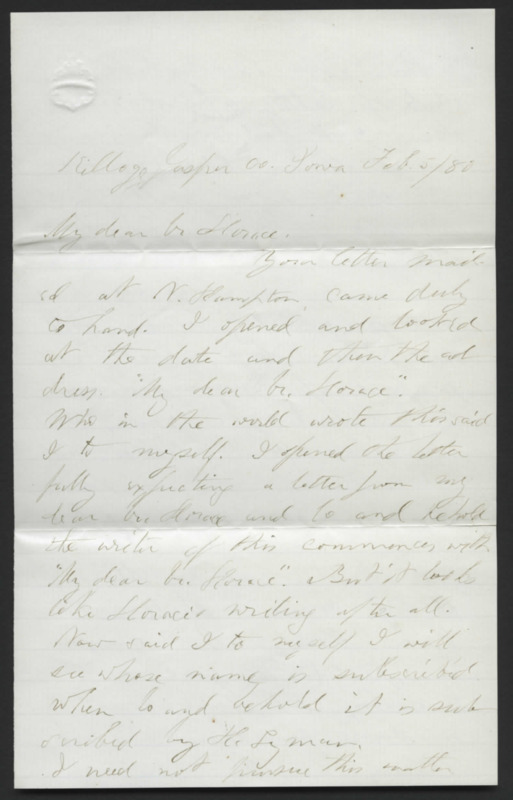 Kellogg Jasper Co. Iowa Feb. 5/80
My dear br. Horace.
Your letter mail-
ed at N. Hampton came duly
to hand. I opened and looked
at the date and then the ad
dress. "My dear br. Horace".
Who in the world wrote this said
I to myself. I opened the letter
fully expecting a letter from my
dear br. Horace and lo and behold
the writer of this commences with
"My dear br. Horace". But it looks
like Horace's writing after all.
Now said I to myself I will
see whose name is subscribed
when lo and behold it is sub
scribed by "H. Lyman.
I need not pursue this matter